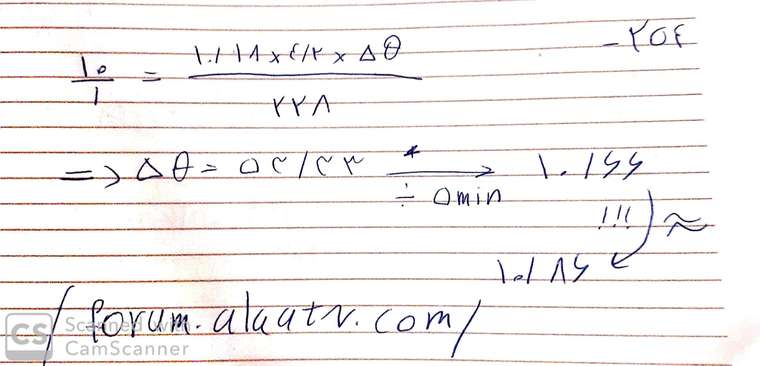 -۲۵۴
۱۰/۱ = ۱۰/۱۸ × ۴/۲ × Δθ / ۲۲۸
=> Δθ = ۵۳/۳۳ * ÷ ۵min → ۱۰/۶۶
!!! ≈
۱۰/۸۶
/forum.alaatv.com/
CS Scanned with
CamScanner